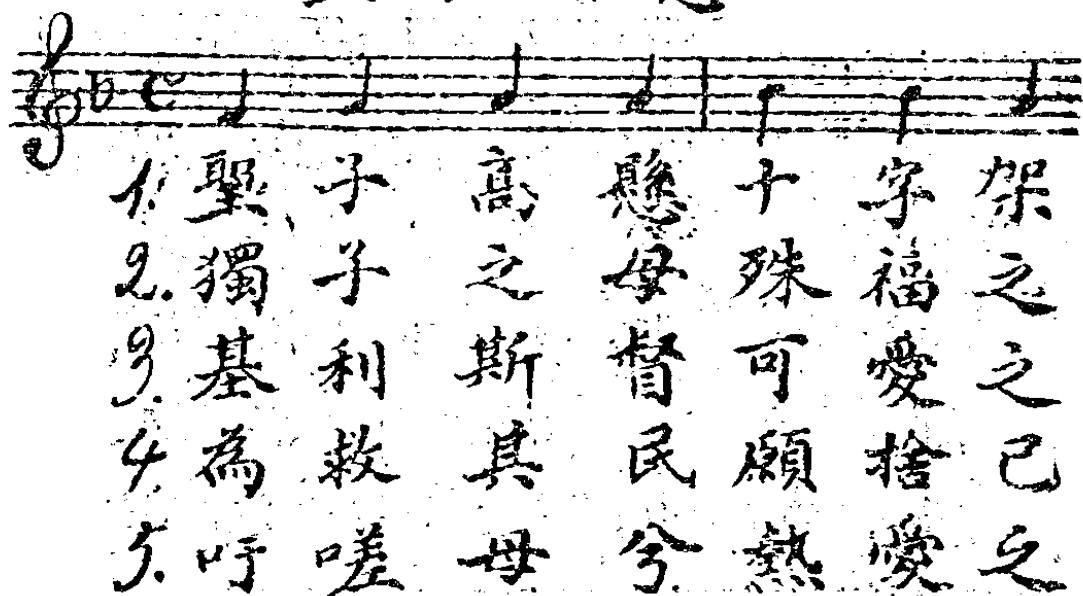 1. 聖子高懸十字架
2. 獨子之母殊福之
3. 基利斯督可愛之
4. 為救其民願捨己
5. 吁嗟母兮熱愛之